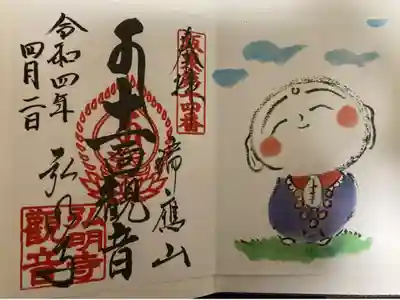 奉拝
坂東第十四番
瑞應山
十一面觀音
弘明寺
弘明寺
觀音
令和四年
四月二日